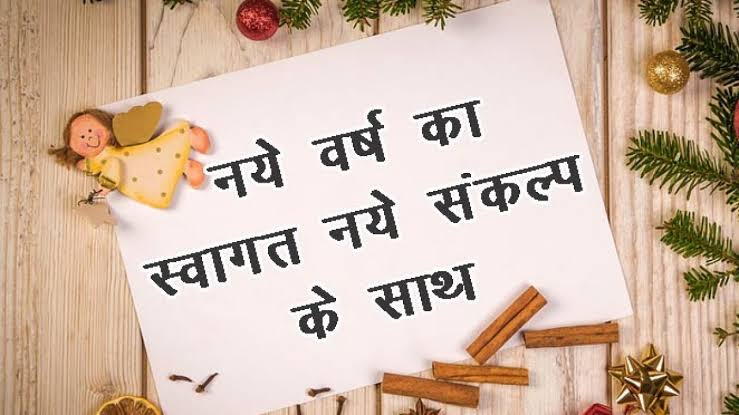 नये वर्ष का
स्वागत नये संकल्प
के साथ